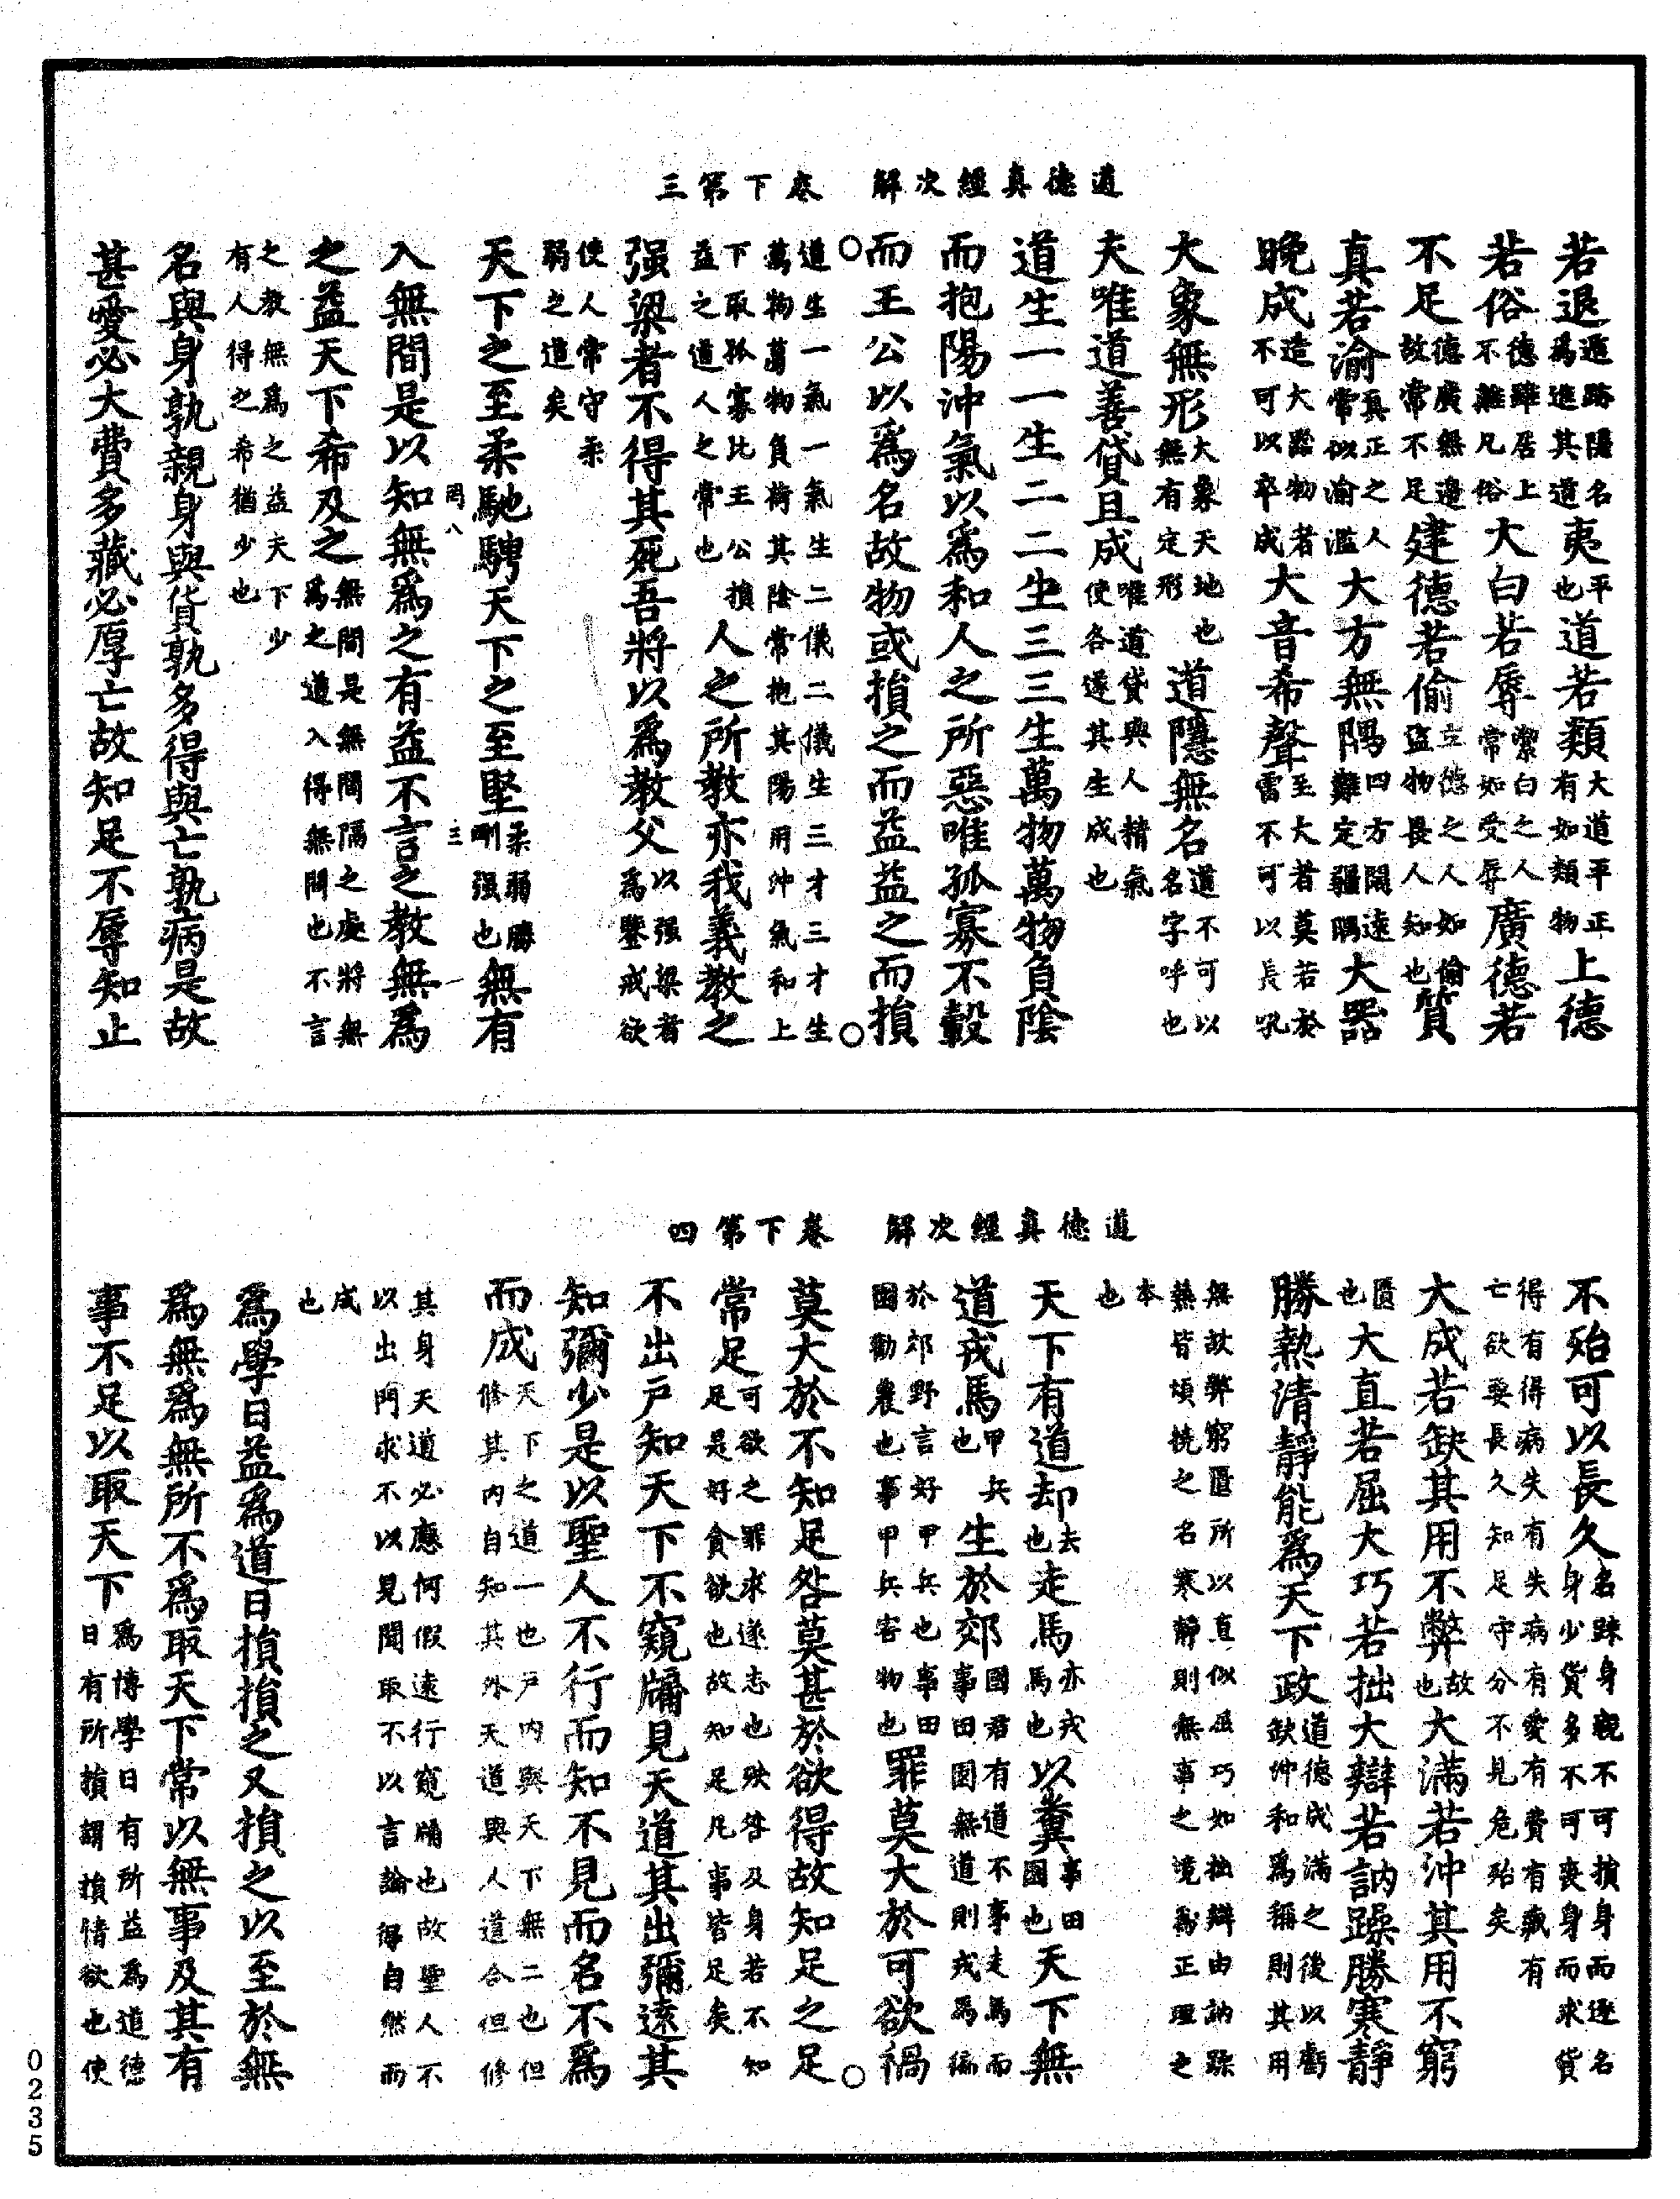 道德真經次解　卷下第三
若退遁跡隱名爲進其道夷平也道若類大道平正有如類物上德
若俗德雖居上不離凡俗大白若辱潔白之人常如受辱廣德若
不足德廣無邊故常不足建德若偷立德之人如偷盜物畏人知也質
真若渝真正之人常似渝濫大方無隅四方闊遠難定疆隅大器
晚成造大器物者不可以卒成大音希聲至大者莫若於雷不可以長吼
大象無形大象天地也無有定形道隱無名道不可以名字呼也
夫唯道善貸且成唯道貸與人精氣使各遂其生成也
道生一一生二二生三三生萬物萬物負陰
而抱陽沖氣以爲和人之所惡唯孤寡不轂
而王公以爲名故物或損之而益益之而損
○道生一氣一氣生二儀二儀生三才三才生萬物萬物負荷其陰常抱其陽用沖氣和上○
下取孤寡比王公損益之道人之常也人之所教亦我義教之
强梁者不得其死吾將以爲教父以强梁者爲鑒戒欲
使人常守柔弱之道矣
天下之至柔馳騁天下之至堅柔弱勝剛强也無有
罔八　三
入無間是以知無爲之有益不言之教無爲
之益天下希及之無間是無間隔之處將無爲之道入得無間也不言
之教無爲之益天下少有人得之希猶少也
名與身孰親身與貨孰多得與亡孰病是故
甚愛必大費多藏必厚亡故知足不辱知止
道德真經次解　卷下第四
不殆可以長久名踈身親不可損身而逐名身少貨多不可喪身而求貨
得有得病失有失病有愛有費有藏有亡欲要長久知足守分不見危殆矣
大成若缺其用不弊故也大滿若沖其用不窮
匱也大直若屈大巧若拙大辯若訥躁勝寒靜
勝熱清靜能爲天下政道德成滿之後以虧缺沖和爲稱則其用
無故弊窮匱所以直似屈巧如拙辯由訥躁熱皆煩撓之名寒靜則無事之境爲正理之
本也
天下有道却去也走馬亦戎馬也以糞事田國也天下無
道戎馬甲兵也生於郊國君有道不事走馬而事田園無道則戎馬徧
於郊野言好甲兵也事田園勸農也事甲兵害物也罪莫大於可欲禍
莫大於不知足咎莫甚於欲得故知足之足○
常足可欲之罪求遂志也殃咎及身若不知足是好貪欲也故知足凡事皆足矣
不出戶知天下不窺牖見天道其出彌遠其
知彌少是以聖人不行而知不見而名不爲
而成天下之道一也戶內與天下無二也但修其內自知其外天道與人道合但修
其身天道必應何假遠行窺牖也故聖人不以出門求不以見聞取不以言論得自然而
成也
爲學日益爲道日損損之又損之以至於無
爲無爲無所不爲取天下常以無事及其有
事不足以取天下爲博學日有所益爲道德日有所損謂損情欲也使
0235